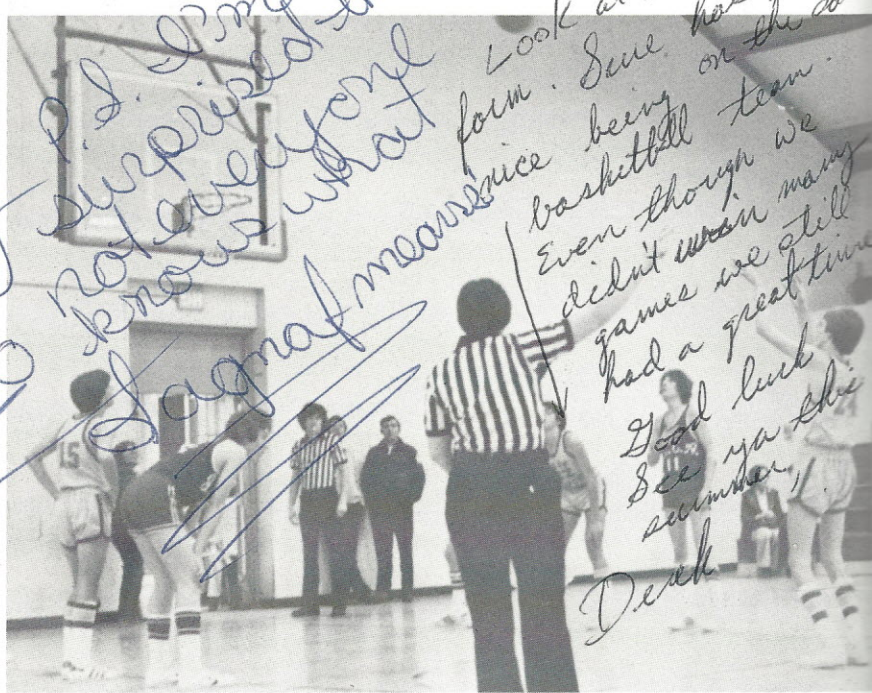 P.S. I'm
surprised
not everyone
knows what
Sagnaf means
Look at
form. Sure
nice being on the
basketball team.
Even though we
didn't win many
games we still
had a great time
Good luck
See ya this
summer,
Derek
15